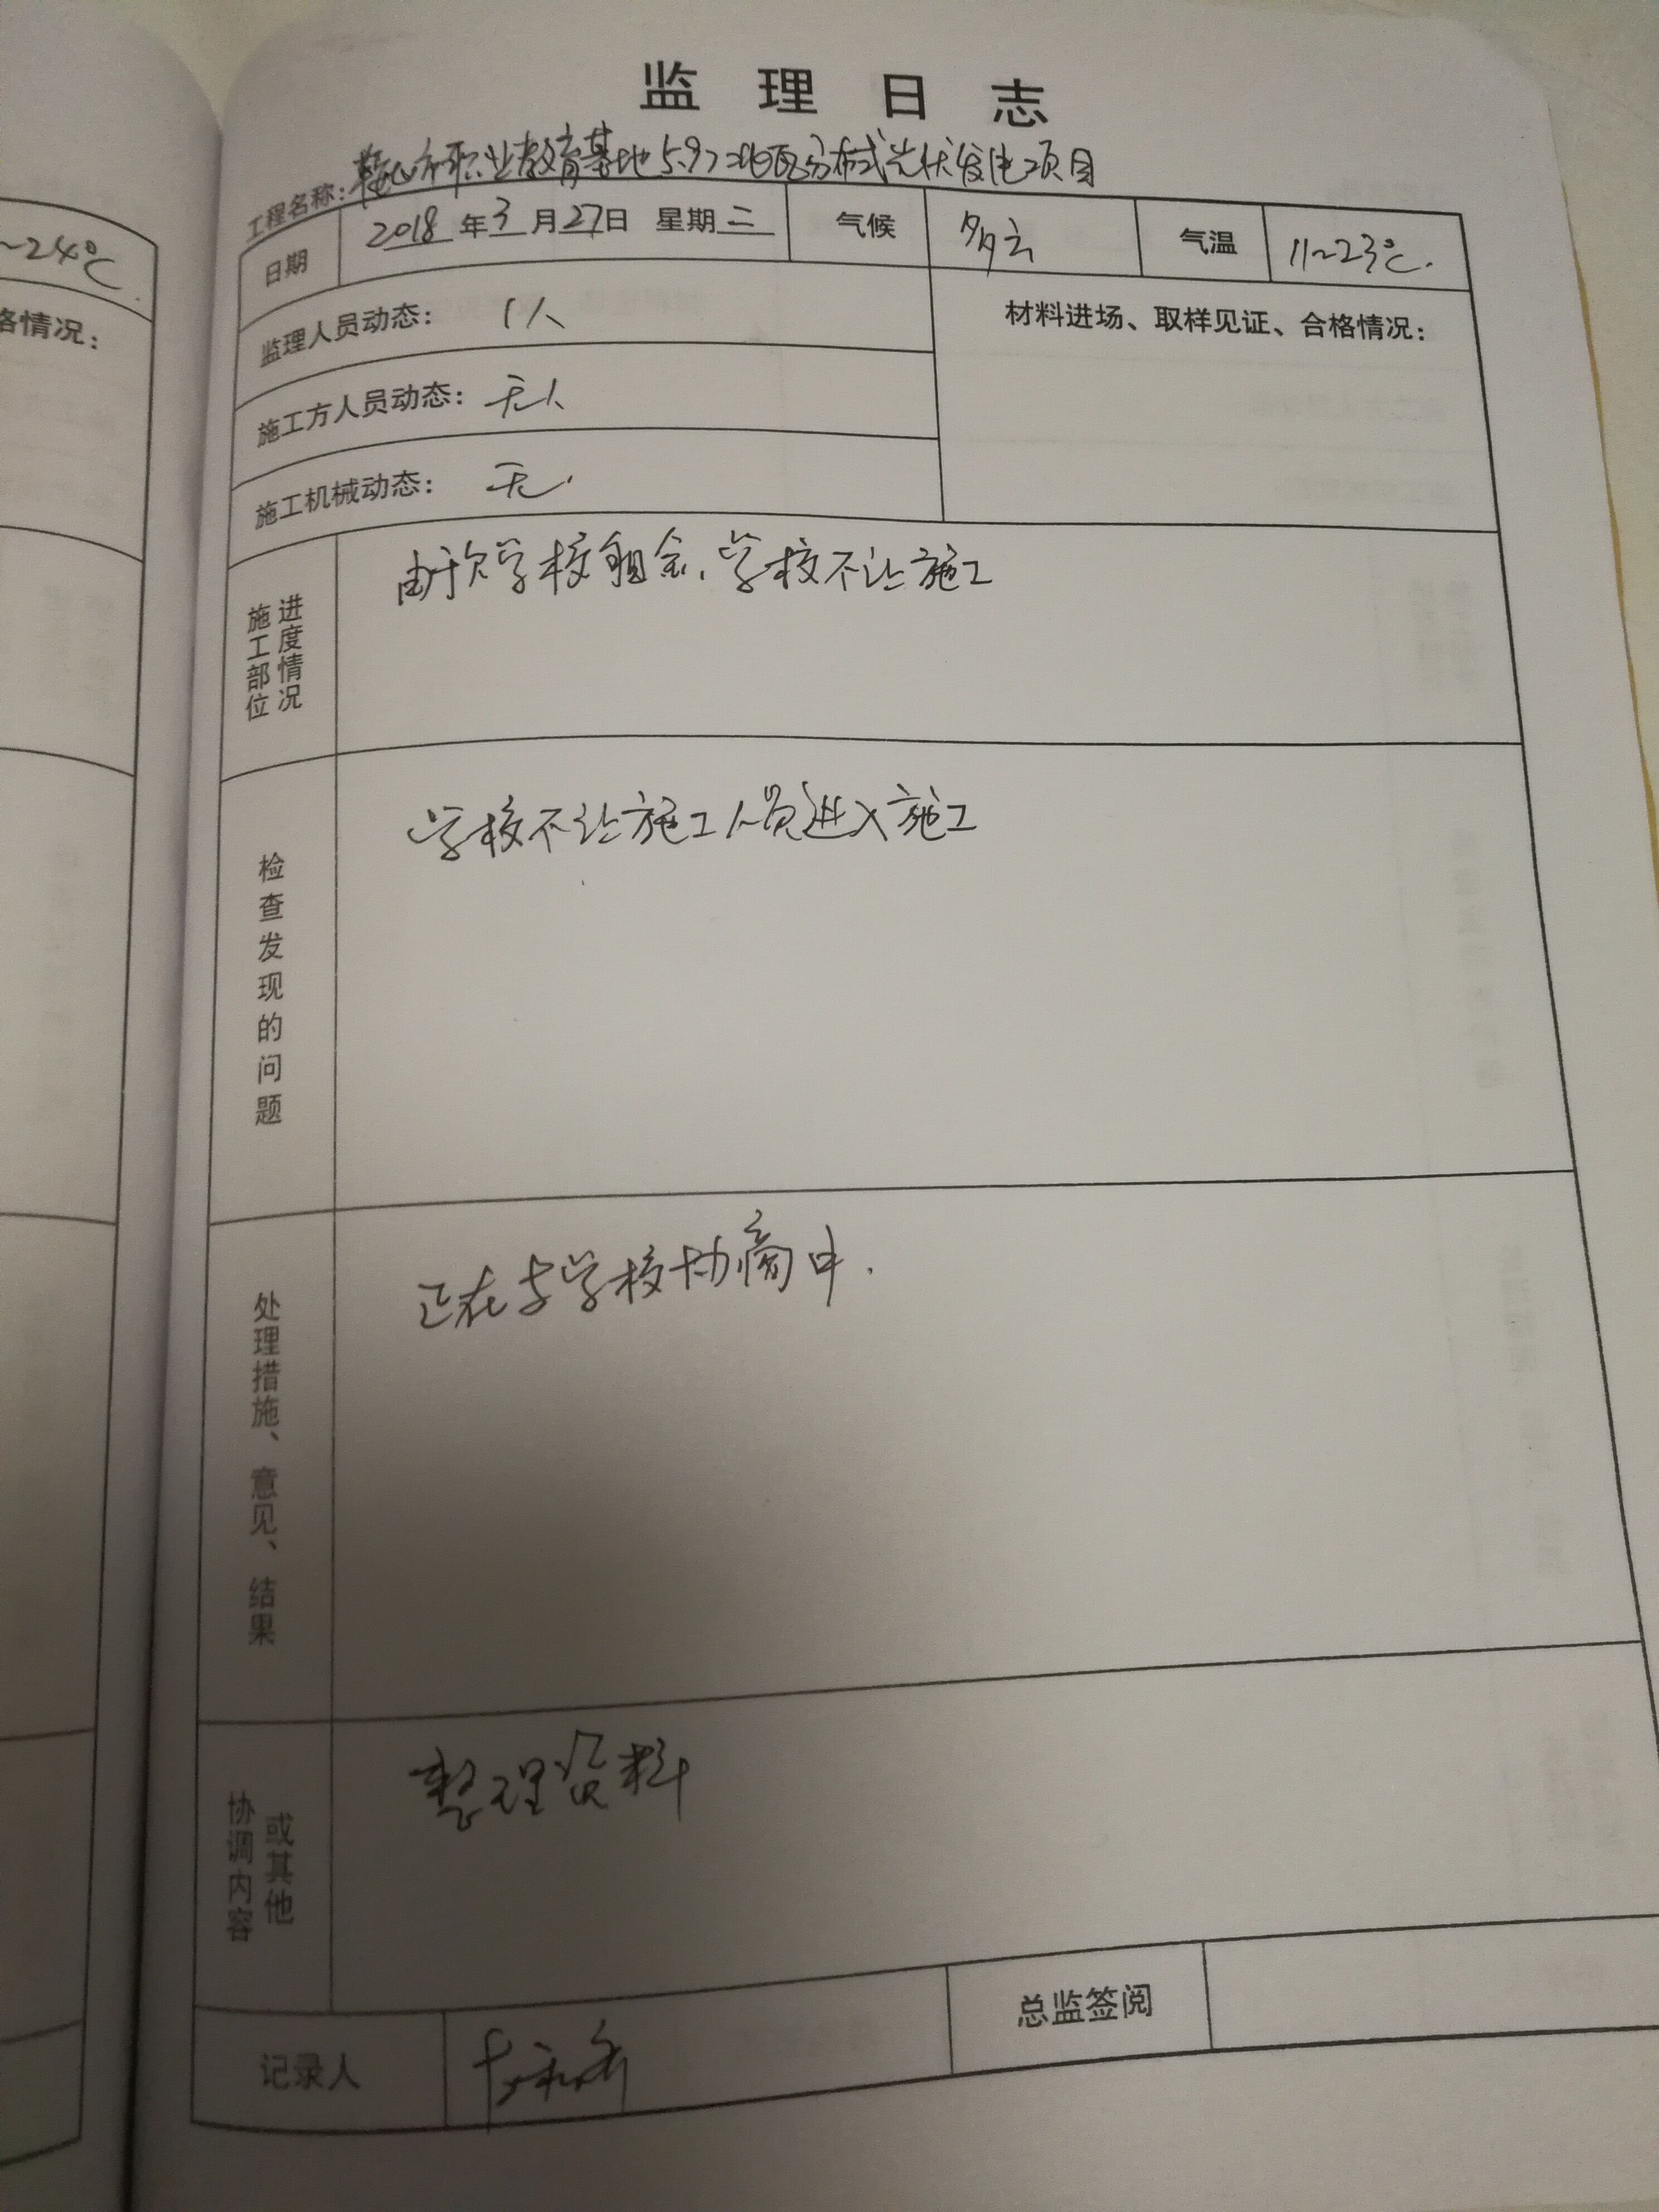 监理日志
工程名称:鞍山市职业教育基地5.972兆瓦分布式光伏发电项目
日期 2018年3月27日 星期二 气候 多云 气温 11~23℃.
监理人员动态: 1人
材料进场、取样见证、合格情况:
施工方人员动态: 无人
施工机械动态: 无.
施工部位 进度情况
由于欠学校租金,学校不让施工
检查发现的问题
学校不让施工人员进入施工
处理措施、意见、结果
正在与学校协商中.
协调内容 或其他
整理资料
记录人
总监签阅
~24℃
格情况: